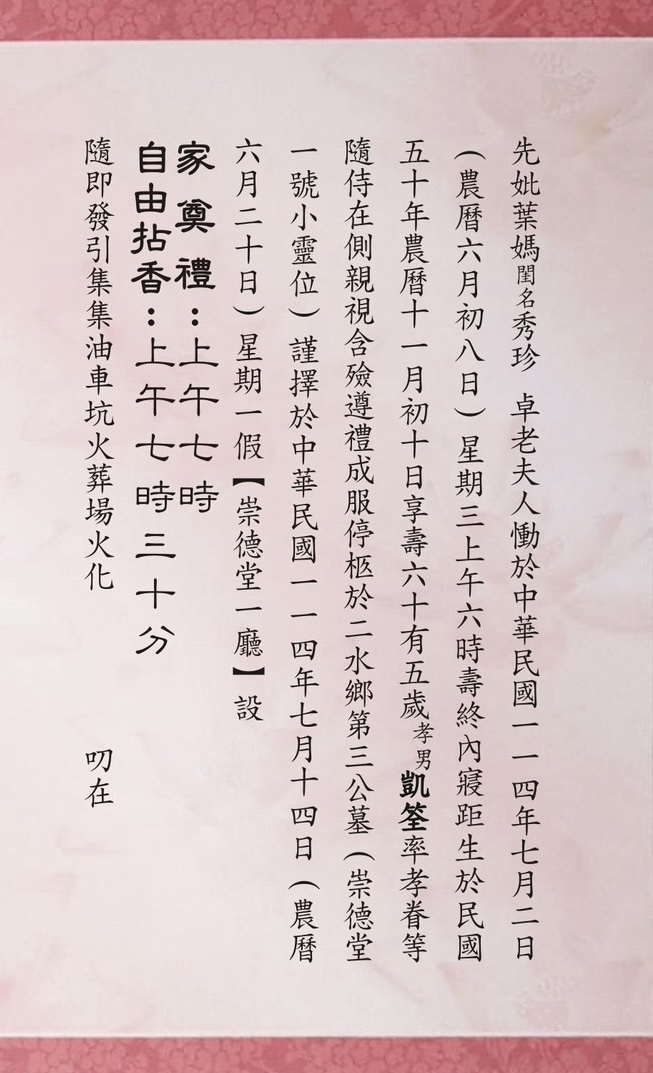 先妣葉媽閨名秀珍 卓老夫人慟於中華民國一一四年七月二日
（農曆六月初八日）星期三上午六時壽終內寢距生於民國
五十年農曆十一月初十日享壽六十有五歲孝男凱筌率孝眷等
隨侍在側親視含殮遵禮成服停柩於二水鄉第三公墓（崇德堂
一號小靈位）謹擇於中華民國一一四年七月十四日（農曆
六月二十日）星期一假【崇德堂一廳】設
家奠禮：上午七時
自由拈香：上午七時三十分
隨即發引集集油車坑火葬場火化 叨在